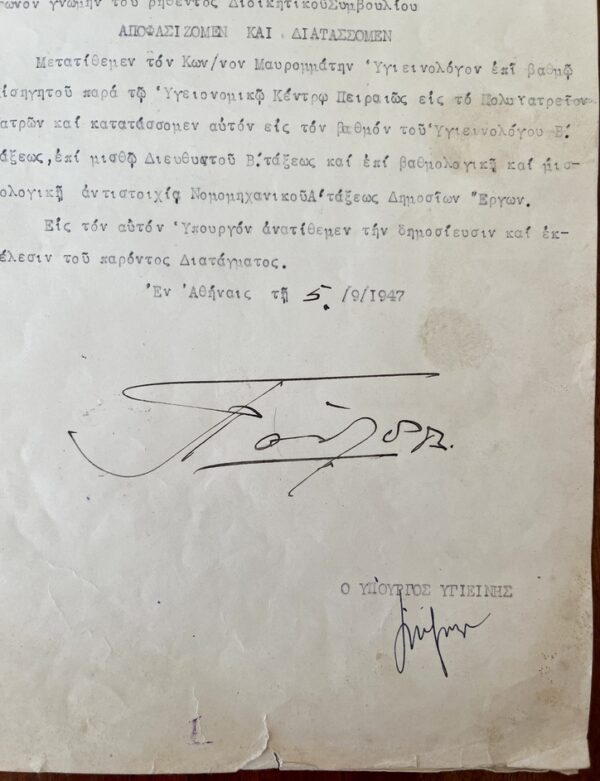 γνώμην τοῦ ρηθέντος ΔιοικητικοῦΣυμβουλίου
ΑΠΟΦΑΣΙΖΟΜΕΝ ΚΑΙ ΔΙΑΤΑΣΣΟΜΕΝ
Μετατίθεμεν τόν Κων/νον Μαυρομμάτην Ὑγιεινολόγον ἐπί βαθμῷ
ἰσηγητοῦ παρά τῷ Ὑγειονομικῷ Κέντρῳ Πειραιῶς εἰς τό Πολυιατρεῖον
ατρῶν καί κατατάσσομεν αὐτόν εἰς τόν βαθμόν τοῦ Ὑγιεινολόγου Β'.
άξεως, ἐπί μισθῷ Διευθυντοῦ Β'. τάξεως καί ἐπί βαθμολογικῇ καί μισ-
ολογικῇ ἀντιστοιχίᾳ ΝομομηχανικοῦΑ'τάξεως Δημοσίων Ἔργων.
Εἰς τόν αὐτόν Ὑπουργόν ἀνατίθεμεν τήν δημοσίευσιν καί ἐκ-
έλεσιν τοῦ παρόντος Διατάγματος.
Ἐν Ἀθήναις τῇ 5. /9/1947
Παῦλος Β.
Ο ΥΠΟΥΡΓΟΣ ΥΓΙΕΙΝΗΣ
1